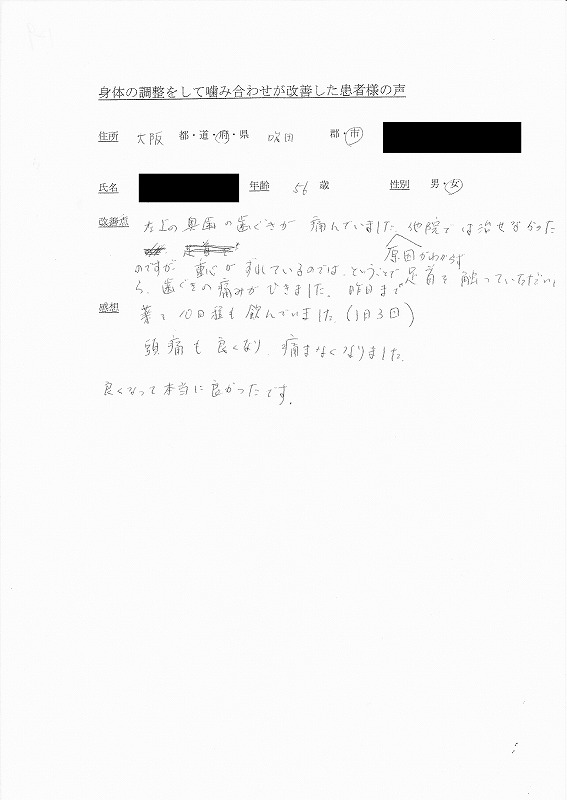 身体の調整をして噛み合わせが改善した患者様の声
住所 大阪 都・道・府・県 吹田 郡・市
氏名 年齢 56 歳 性別 男・女
改善点 左上の奥歯の歯ぐきが 痛んでいました 他院では治せなかった
原因がわからず
のですが 重心が ずれているのでは、ということで 足首を触っていただいた
ら、歯ぐきの痛みができました。昨日まで
感想 薬を 10日程も飲んでいました(1月3回)
頭痛も良くなり、痛まなくなりました。
良くなって本当に良かったです。